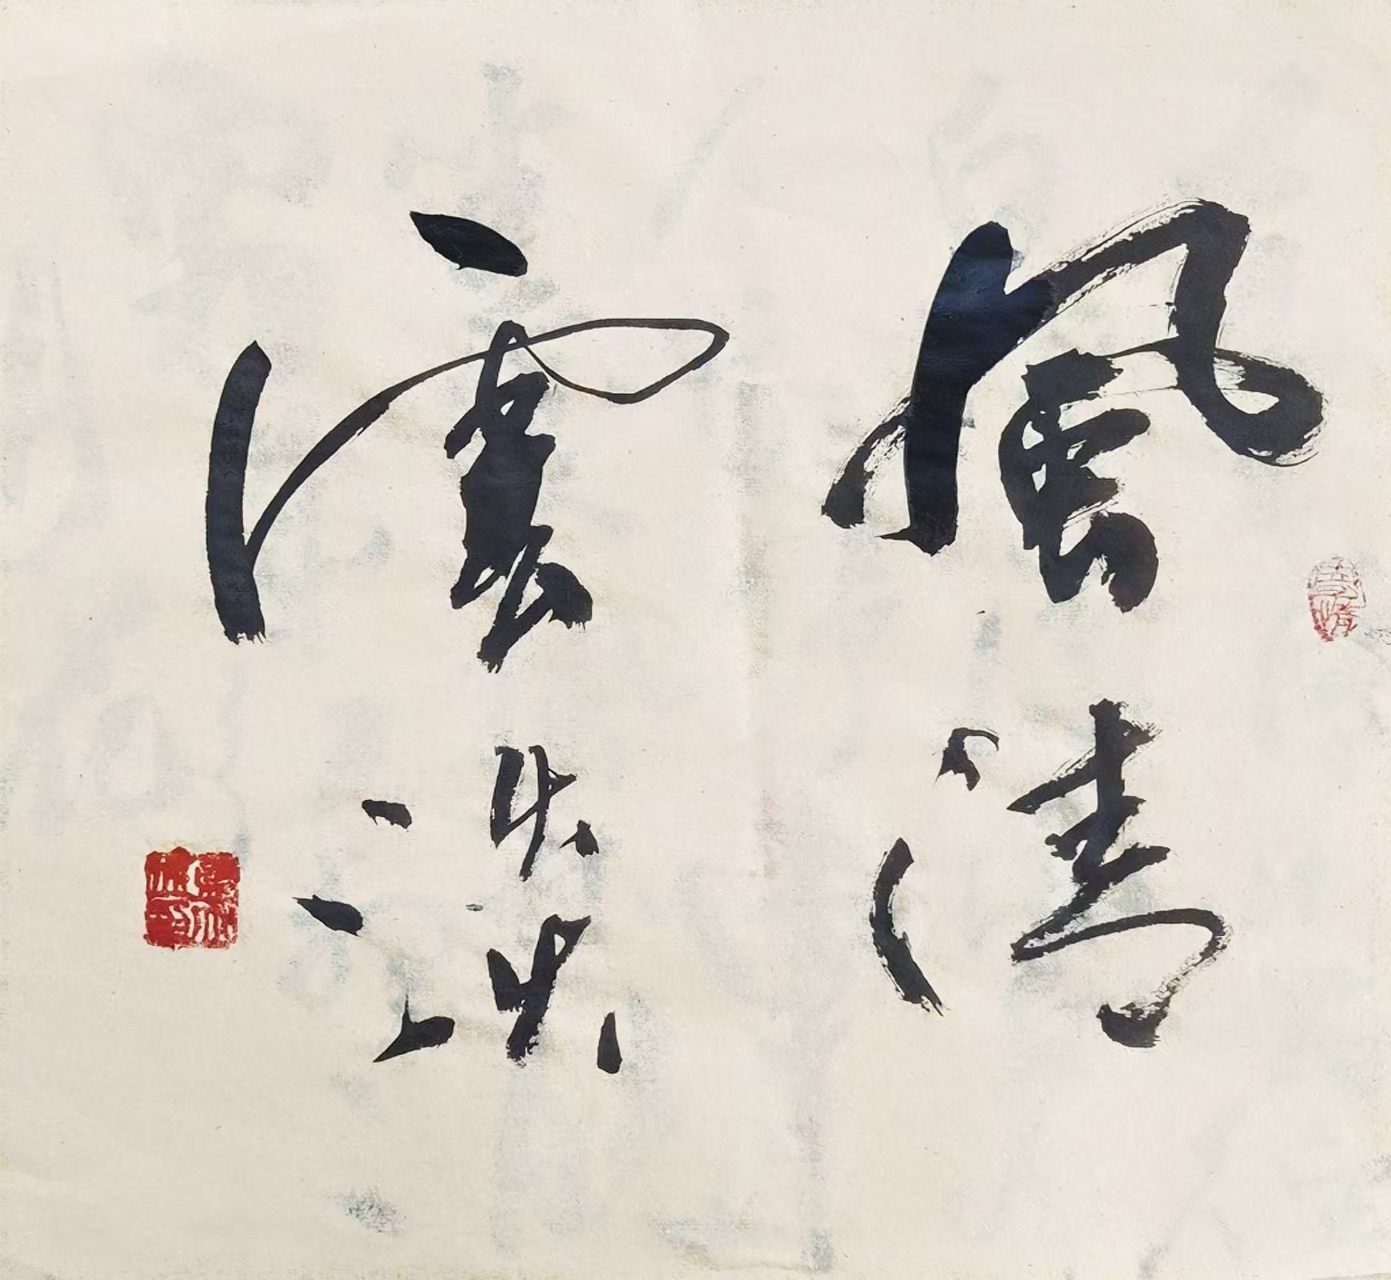 風清
雲淡